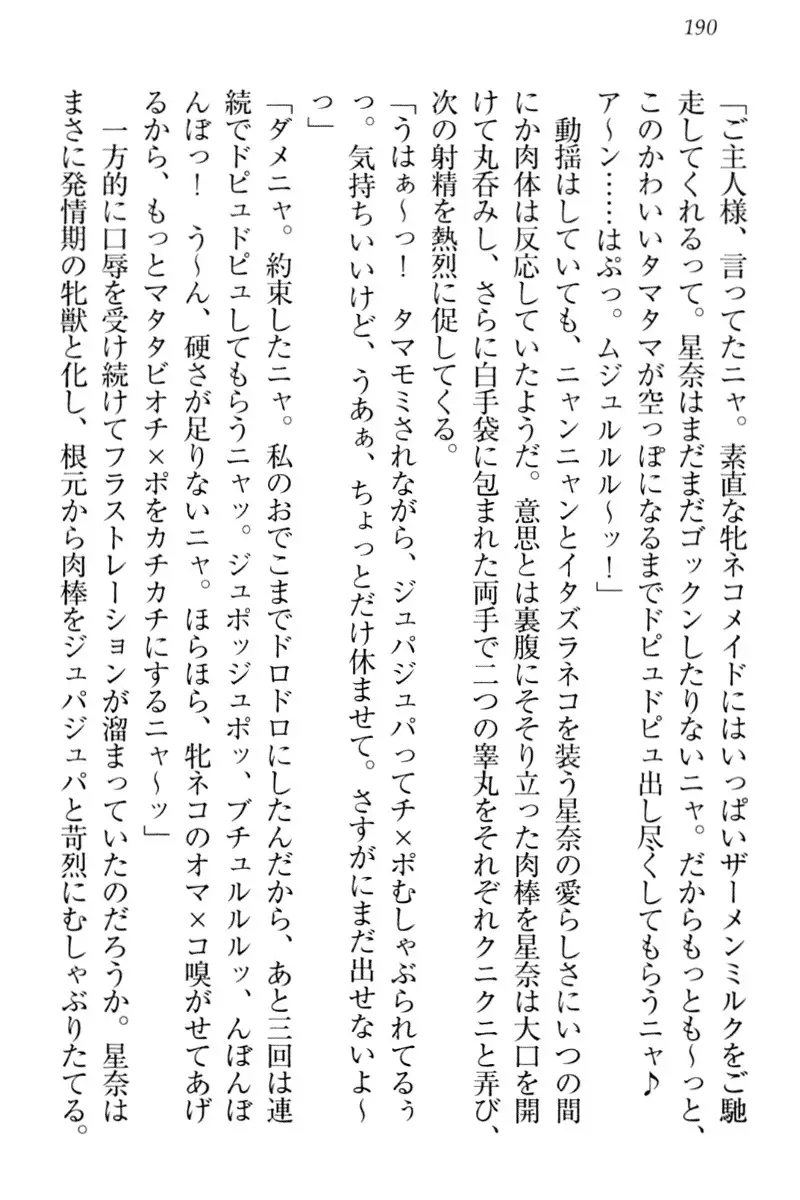 190
「ご主人様、言ってたニャ。素直な牝ネコメイドにはいっぱいザーメンミルクをご馳
走してくれるって。星奈はまだまだゴックンしたりないニャ。だからもっとも〜っと、
このかわいいタマタマが空っぽになるまでドピュドピュ出し尽くしてもらうニャ♪
ア〜ン……はぷっ。ムジュルルル〜ッ！」
　動揺はしていても、ニャンニャンとイタズラネコを装う星奈の愛らしさにいつの間
にか肉体は反応していたようだ。意思とは裏腹にそそり立った肉棒を星奈は大口を開
けて丸呑みし、さらに白手袋に包まれた両手で二つの睾丸をそれぞれクニクニと弄び、
次の射精を熱烈に促してくる。
「うはぁ〜っ！　タマモミされながら、ジュパジュパってチ×ポむしゃぶられてるぅ
っ。気持ちいいけど、うあぁ、ちょっとだけ休ませて。さすがにまだ出せないよ〜
っ」
「ダメニャ。約束したニャ。私のおでこまでドロドロにしたんだから、あと三回は連
続でドピュドピュしてもらうニャッ。ジュポッジュポッ、ブチュルルルッ、んぼんぼ
んぼっ！　う〜ん、硬さが足りないニャ。ほらほら、牝ネコのオマ×コ嗅がせてあげ
るから、もっとマタタビオチ×ポをカチカチにするニャ〜ッ」
　一方的に口辱を受け続けてフラストレーションが溜まっていたのだろうか。星奈は
まさに発情期の牝獣と化し、根元から肉棒をジュパジュパと苛烈にむしゃぶりたてる。